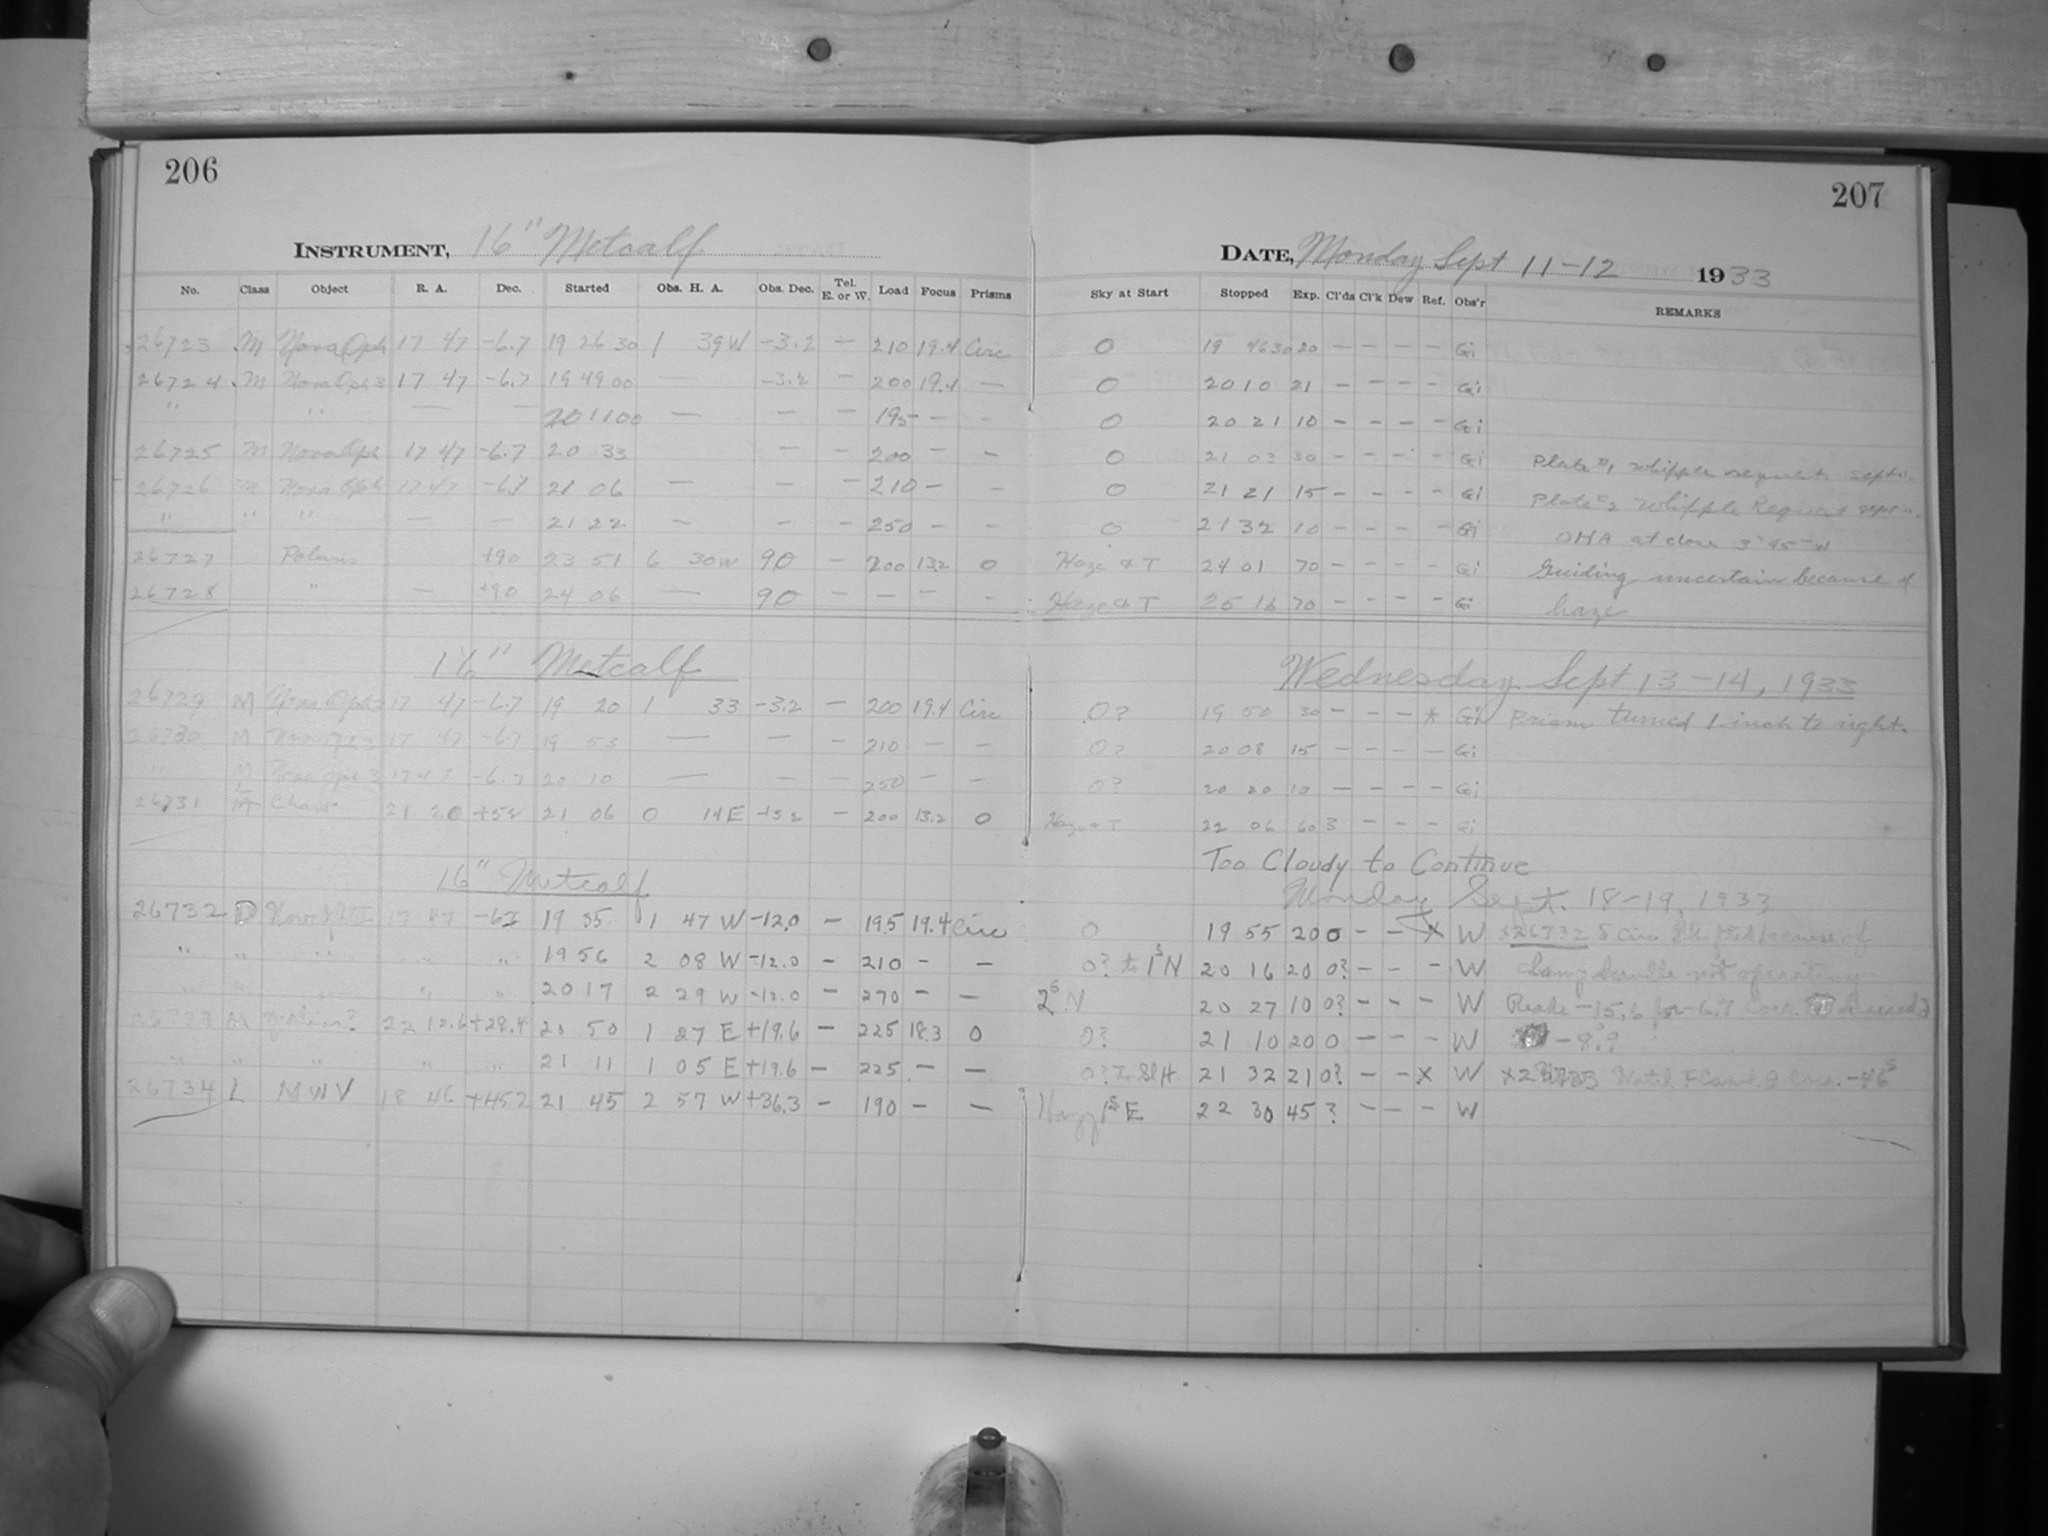 206
207
INSTRUMENT, 16" Metcalf
DATE, Monday Sept 11-12 1933
No. Class Object R. A. Dec. Started Obs. H. A. Obs. Dec. Tel. E. or W. Load Focus Prisms Sky at Start Stopped Exp. Cl'ds Cl'k Dew Ref. Obs'r REMARKS
26723 M Nova Oph 17 47 -6.7 19 26 30 1 39 W -3.2 — 210 19.4 Circ 0 19 46 30 20 — — — — Gi
26724 M Nova Oph 3 17 47 -6.7 19 49 00 — -3.2 — 200 19.4 — 0 20 10 21 — — — — Gi
" " — — 20 11 00 — — — 195 — — 0 20 21 10 — — — — Gi
26725 M Nova Oph 17 47 -6.7 20 33 — — 200 — — 0 21 03 30 — — — — Gi Plate #1 Whipple request Sept 11
26726 M Nova Oph 17 47 -6.7 21 06 — — — 210 — — 0 21 21 15 — — — — Gi Plate #2 Whipple Request Sept 11
" " " — — 21 22 — — — 250 — — 0 21 32 10 — — — — Gi OHA at close 3 45 W
26727 Polaris +90 23 51 6 30 W 90 — 200 13.2 0 Haze & T 24 01 70 — — — — Gi Guiding uncertain because of
26728 " — +90 24 06 — 90 — — — — Haze & T 25 16 70 — — — — Gi haze
16" Metcalf
Wednesday Sept 13-14, 1933
26729 M Nova Oph 3 17 47 -6.7 19 20 1 33 -3.2 — 200 19.4 Circ 0? 19 50 30 — — — * Gi Prism turned 1 inch to right.
26730 M Nova Oph 3 17 47 -6.7 19 53 — — — 210 — — 0? 20 08 15 — — — — Gi
" M Nova Oph 3 17 47 -6.7 20 10 — — — 250 — — 0? 20 20 10 — — — — Gi
26731 M 21 20 +52 21 06 0 14 E +52 — 200 13.2 0 Haze & T 22 06 60 3 — — — Gi
Too Cloudy to Continue
16" Metcalf
Monday Sept. 18-19, 1933
26732 17 47 19 35 1 47 W -12.0 — 195 19.4 Circ 0 19 55 20 0 — — X W x26732 because of
" " " " 19 56 2 08 W -12.0 — 210 — — 0? to 1S N 20 16 20 0? — — — W not operating
" " " " 20 17 2 29 W -12.0 — 270 — — 2S N 20 27 10 0? — — — W Reade -15.6 for -6.7
26733 M 22 12.6 +28.4 20 50 1 27 E +19.6 — 225 18.3 0 0? 21 10 20 0 — — — W -8.9
" " " " " 21 11 1 05 E +19.6 — 225 — — 0? 21 32 21 0? — — X W x26733
26734 L MWV 18 46 +45.2 21 45 2 57 W +36.3 — 190 — — Hazy 1S E 22 30 45 ? — — — W